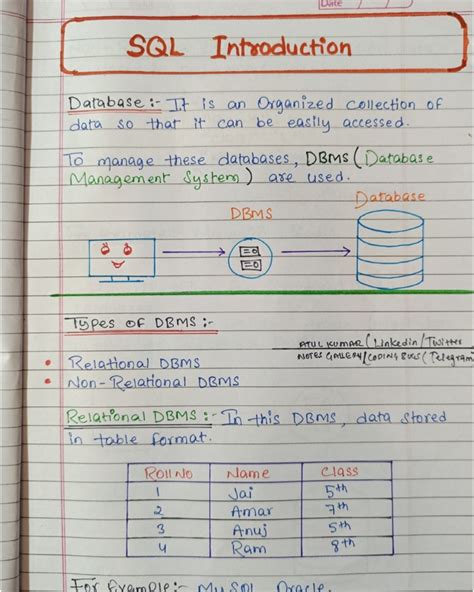 Date
SQL Introduction
Database :- It is an Organized collection of
data so that it can be easily accessed.
To manage these databases, DBMS (Database
Management System) are used.
Database
DBMS
Types of DBMS :-
ATUL KUMAR (Linkedin/Twitter
NOTES GALLERY/CODING BUGS (Telegram)
• Relational DBMS
• Non-Relational DBMS
Relational DBMS :- In this DBMS, data stored
in table format.
Roll No Name Class
1 Jai 5th
2 Amar 7th
3 Anuj 5th
4 Ram 8th
For Example:- MySQL Oracle.